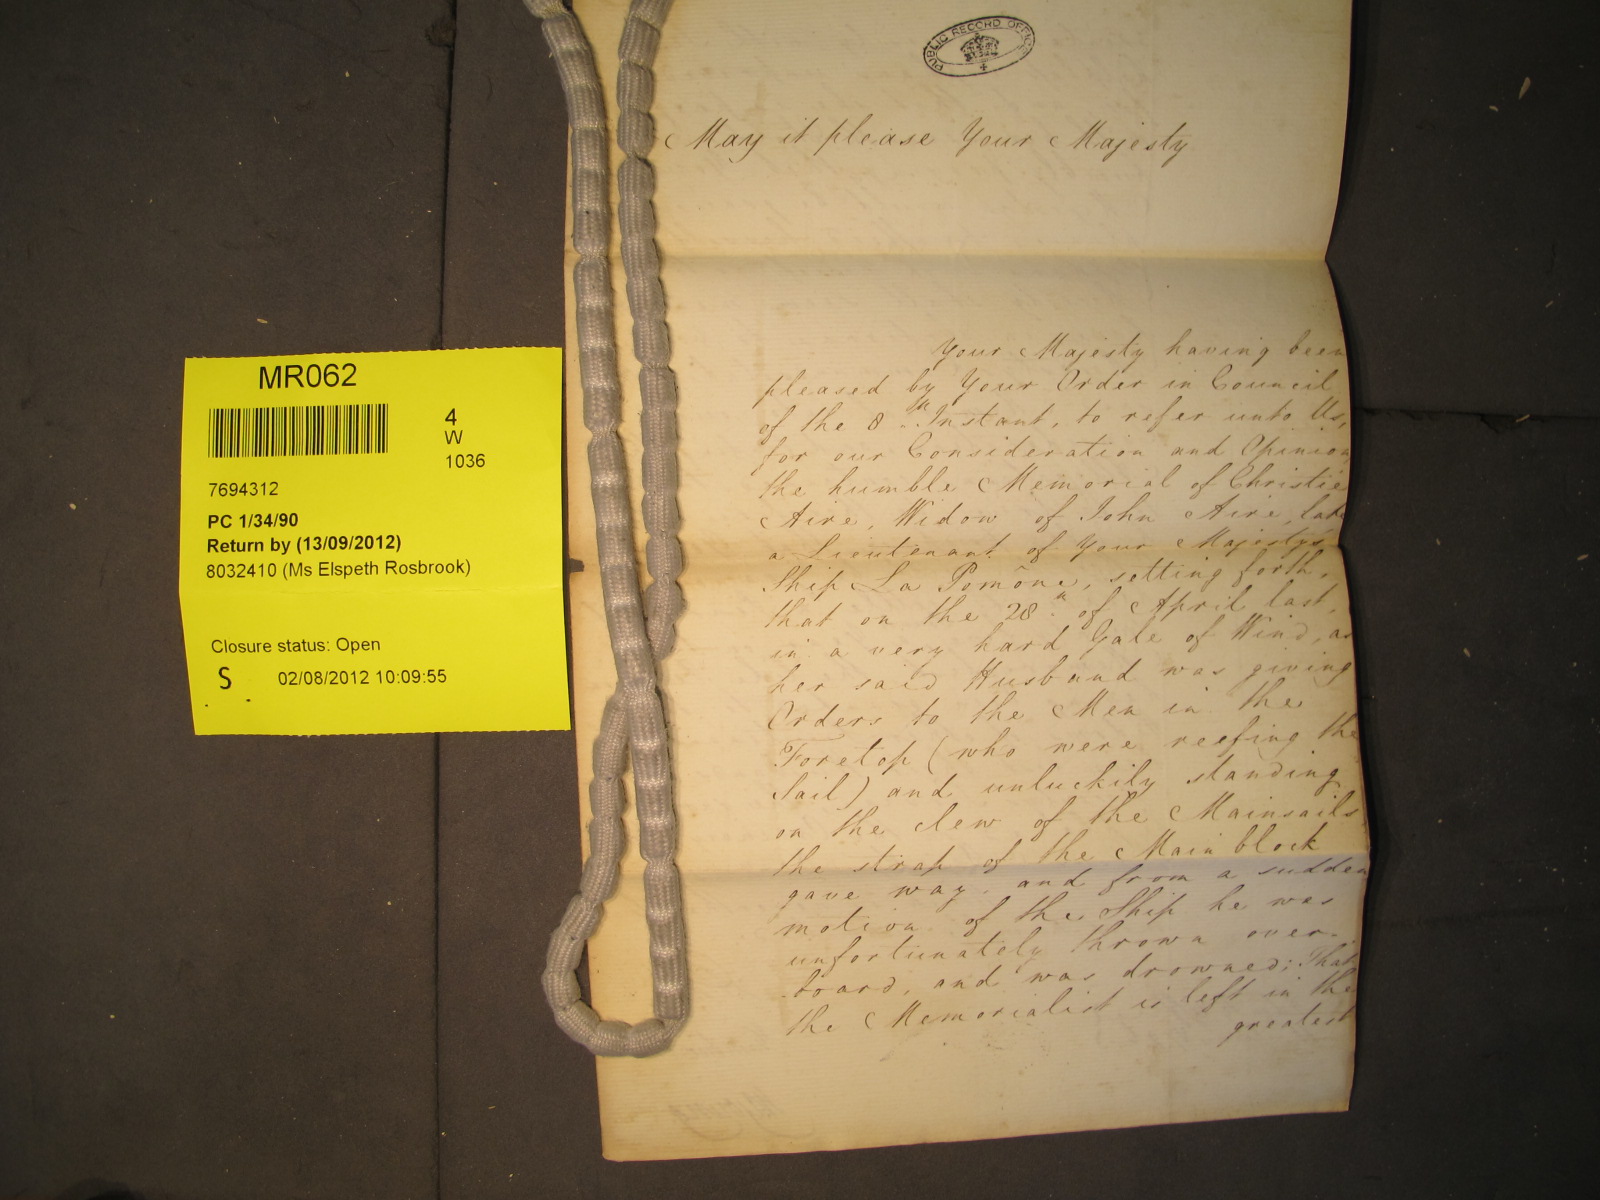 PUBLIC RECORD OFFICE
May it please Your Majesty
Your Majesty having been
pleased by Your Order in Council
of the 8th Instant, to refer unto Us,
for our Consideration and Opinion
the humble Memorial of Christie
Aire, Widow of John Aire, late
a Lieutenant of Your Majesty's
Ship La Pomône, setting forth,
that on the 28th of April last,
in a very hard Gale of Wind, as
her said Husband was giving
Orders to the Men in the
Foretop (who were reefing the
Sail) and unluckily standing
on the clew of the Mainsails
the strap of the Main block
gave way, and from a sudden
motion of the Ship he was
unfortunately thrown over-
board, and was drowned; That
the Memorialist is left in the
greatest
MR062
4
W
1036
7694312
PC 1/34/90
Return by (13/09/2012)
8032410 (Ms Elspeth Rosbrook)
Closure status: Open
S 02/08/2012 10:09:55